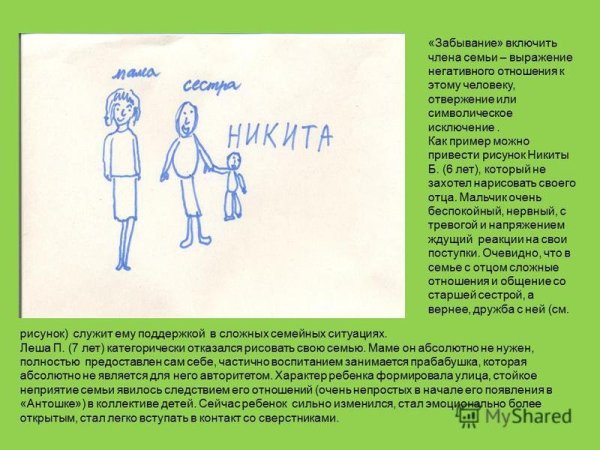 мама
сестра
НИКИТА
«Забывание» включить
члена семьи – выражение
негативного отношения к
этому человеку,
отвержение или
символическое
исключение .
Как пример можно
привести рисунок Никиты
Б. (6 лет), который не
захотел нарисовать своего
отца. Мальчик очень
беспокойный, нервный, с
тревогой и напряжением
ждущий реакции на свои
поступки. Очевидно, что в
семье с отцом сложные
отношения и общение со
старшей сестрой, а
вернее, дружба с ней (см.
рисунок) служит ему поддержкой в сложных семейных ситуациях.
Леша П. (7 лет) категорически отказался рисовать свою семью. Маме он абсолютно не нужен,
полностью предоставлен сам себе, частично воспитанием занимается прабабушка, которая
абсолютно не является для него авторитетом. Характер ребенка формировала улица, стойкое
неприятие семьи явилось следствием его отношений (очень непростых в начале его появления в
«Антошке») в коллективе детей. Сейчас ребенок сильно изменился, стал эмоционально более
открытым, стал легко вступать в контакт со сверстниками.
MyShared